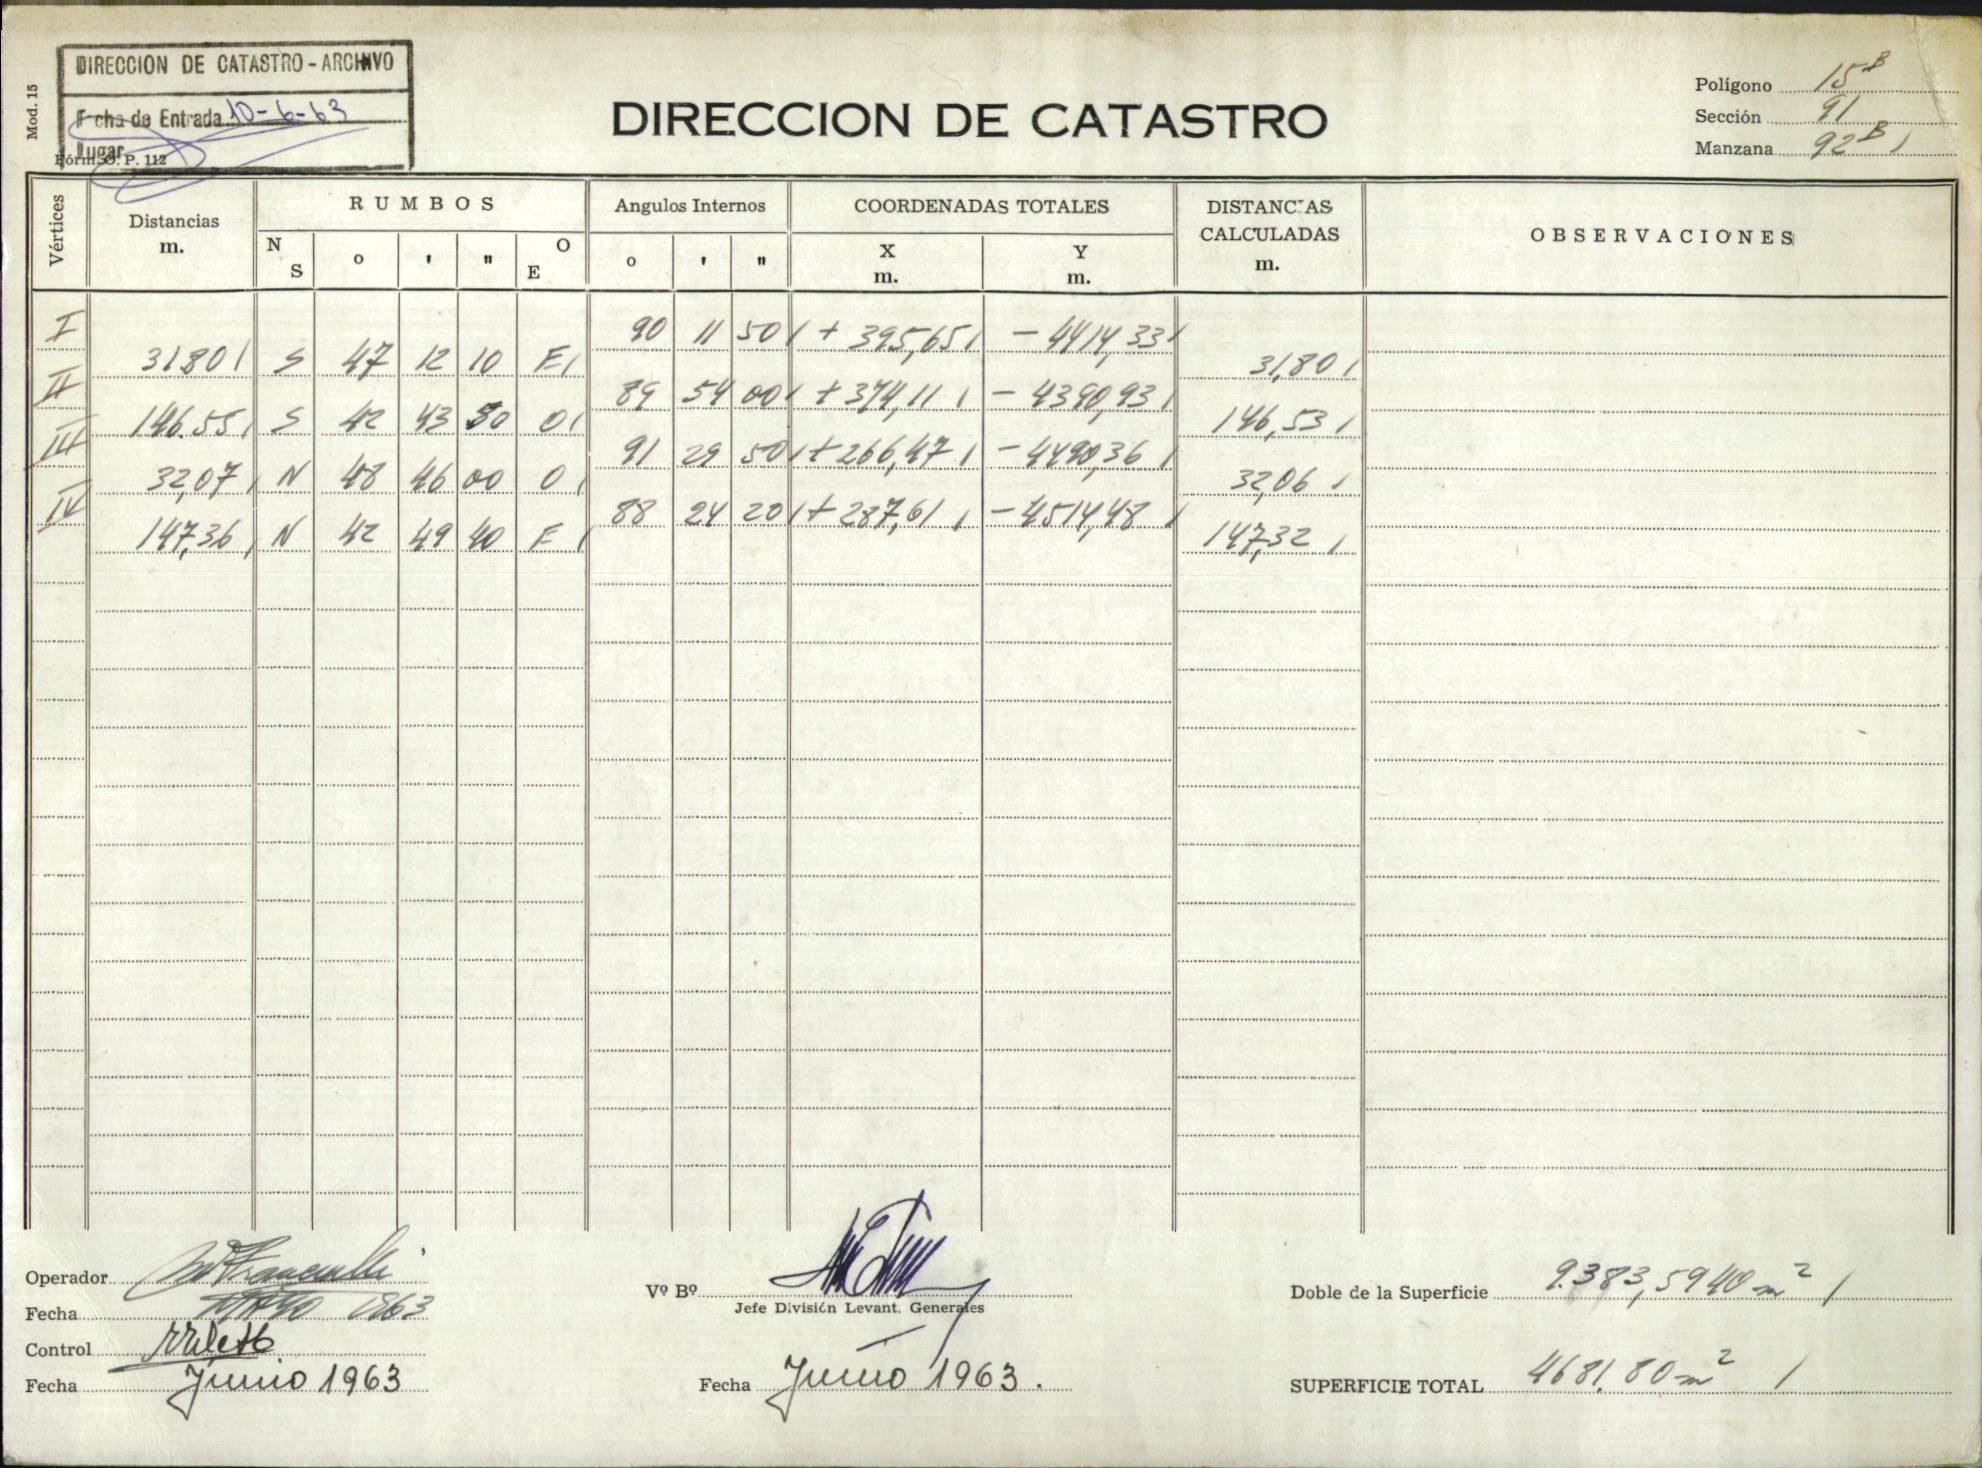 DIRECCION DE CATASTRO - ARCHIVO
Fecha de Entrada 10-6-63
Lugar
Mod. 15
Fórm. O. P. 112
DIRECCION DE CATASTRO
Polígono 15 B
Sección 91
Manzana 92 B
Vértices
Distancias m.
RUMBOS
N S o ' " O E
Angulos Internos
o ' "
COORDENADAS TOTALES
X m. Y m.
DISTANCIAS CALCULADAS m.
OBSERVACIONES
I 90 11 50 + 395,65 - 4414,33
31,80 S 47 12 10 E 31,80
II 89 54 00 + 374,11 - 4390,93
146.55 S 42 43 50 O 146,53
III 91 29 50 + 266,47 - 4490,36
32,07 N 48 46 00 O 32,06
IV 88 24 20 + 287,61 - 4514,48
147,36 N 42 49 40 E 147,32
Operador
Fecha MAYO 1963
Control
Fecha Junio 1963
Vº Bº
Jefe División Levant. Generales
Fecha Junio 1963.
Doble de la Superficie 9.383,5940 m²
SUPERFICIE TOTAL 4681.80 m²